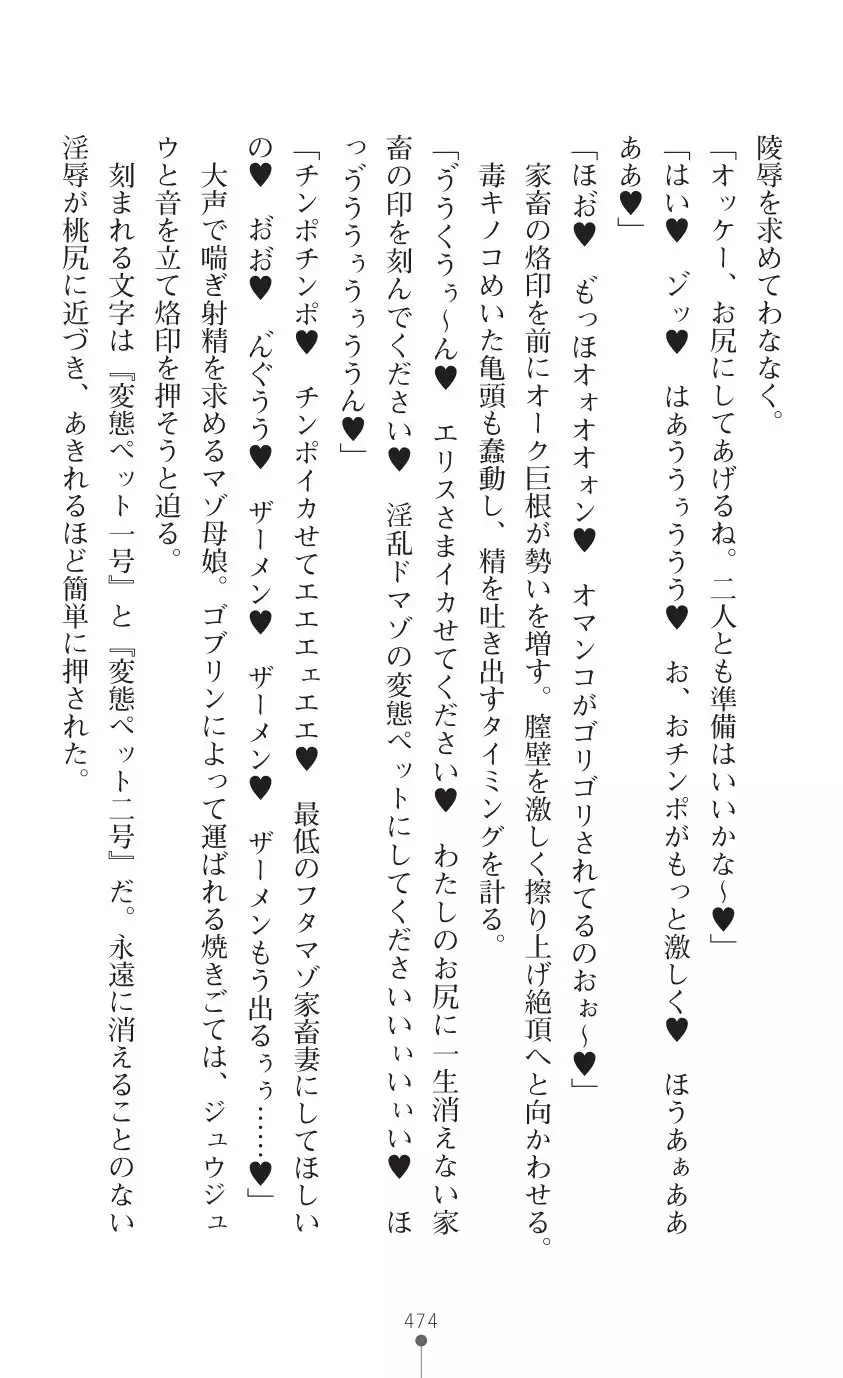 陵辱を求めてわななく。
「オッケー、お尻にしてあげるね。二人とも準備はいいかな～♥」
「はい♥　ゾッ♥　はあううぅううう♥　お、おチンポがもっと激しく♥　ほうあぁああ
ああ♥」
「ほお゛♥　も゛っほオォオオォン♥　オマンコがゴリゴリされてるのおぉ～♥」
　家畜の烙印を前にオーク巨根が勢いを増す。膣壁を激しく擦り上げ絶頂へと向かわせる。
毒キノコめいた亀頭も蠢動し、精を吐き出すタイミングを計る。
「う゛うくうぅ～ん♥　エリスさまイカせてください♥　わたしのお尻に一生消えない家
畜の印を刻んでください♥　淫乱ドマゾの変態ペットにしてくださいいぃいぃい♥　ほ
っう゛ううぅうぅううん♥」
「チンポチンポ♥　チンポイカせてエエエェエエ♥　最低のフタマゾ家畜妻にしてほしい
の♥　お゛お゛♥　ん゛ぐうう♥　ザーメン♥　ザーメン♥　ザーメンもう出るぅぅ……♥」
　大声で喘ぎ射精を求めるマゾ母娘。ゴブリンによって運ばれる焼きごては、ジュウジュ
ウと音を立て烙印を押そうと迫る。
　刻まれる文字は『変態ペット一号』と『変態ペット二号』だ。永遠に消えることのない
淫辱が桃尻に近づき、あきれるほど簡単に押された。
474